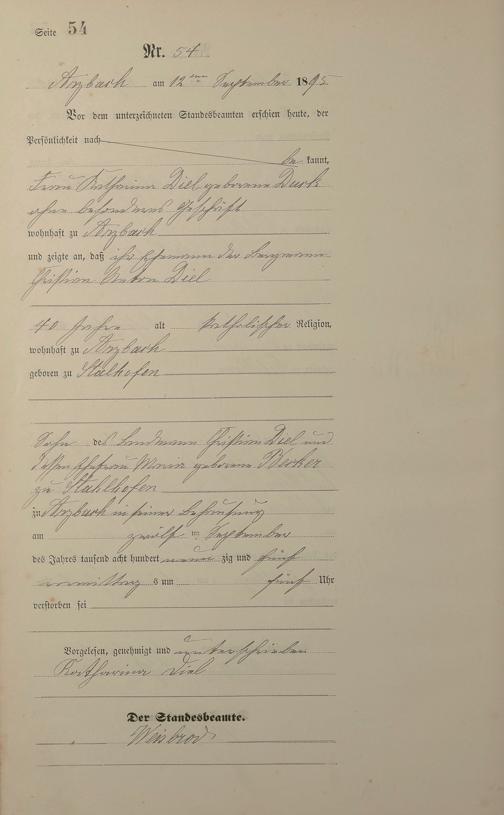 Seite 54
Nr. 54
Arzbach am 12ten September 1895
Vor dem unterzeichneten Standesbeamten erschien heute, der
Persönlichkeit nach
be kannt,
Frau Katharina Diel geborene
ohne besonderes Geschäft
wohnhaft zu Arzbach
und zeigte an, daß ihr Ehemann der Bergmann
Christian Anton Diel
40 Jahre alt katholischer Religion,
wohnhaft zu Arzbach
geboren zu Stalhofen
Sohn des Landmann Christian Diel und
dessen Ehefrau Maria geborene
zu Stahlhofen
zu Arzbach in seiner Behausung
am zwölf ten September
des Jahres tausend acht hundert neun zig und fünf
vormittags um fünf Uhr
verstorben sei
Vorgelesen, genehmigt und unterschrieben
Katharina Diel
Der Standesbeamte.
Weisbrod